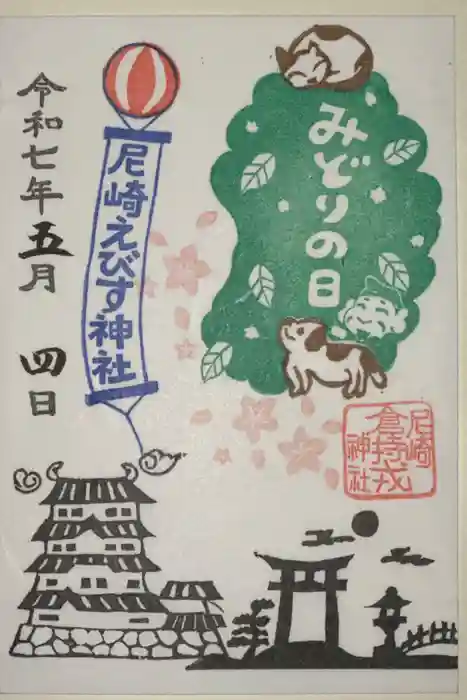 みどりの日
尼崎えびす神社
令和七年五月 四日
尼崎
倉持戎
神社